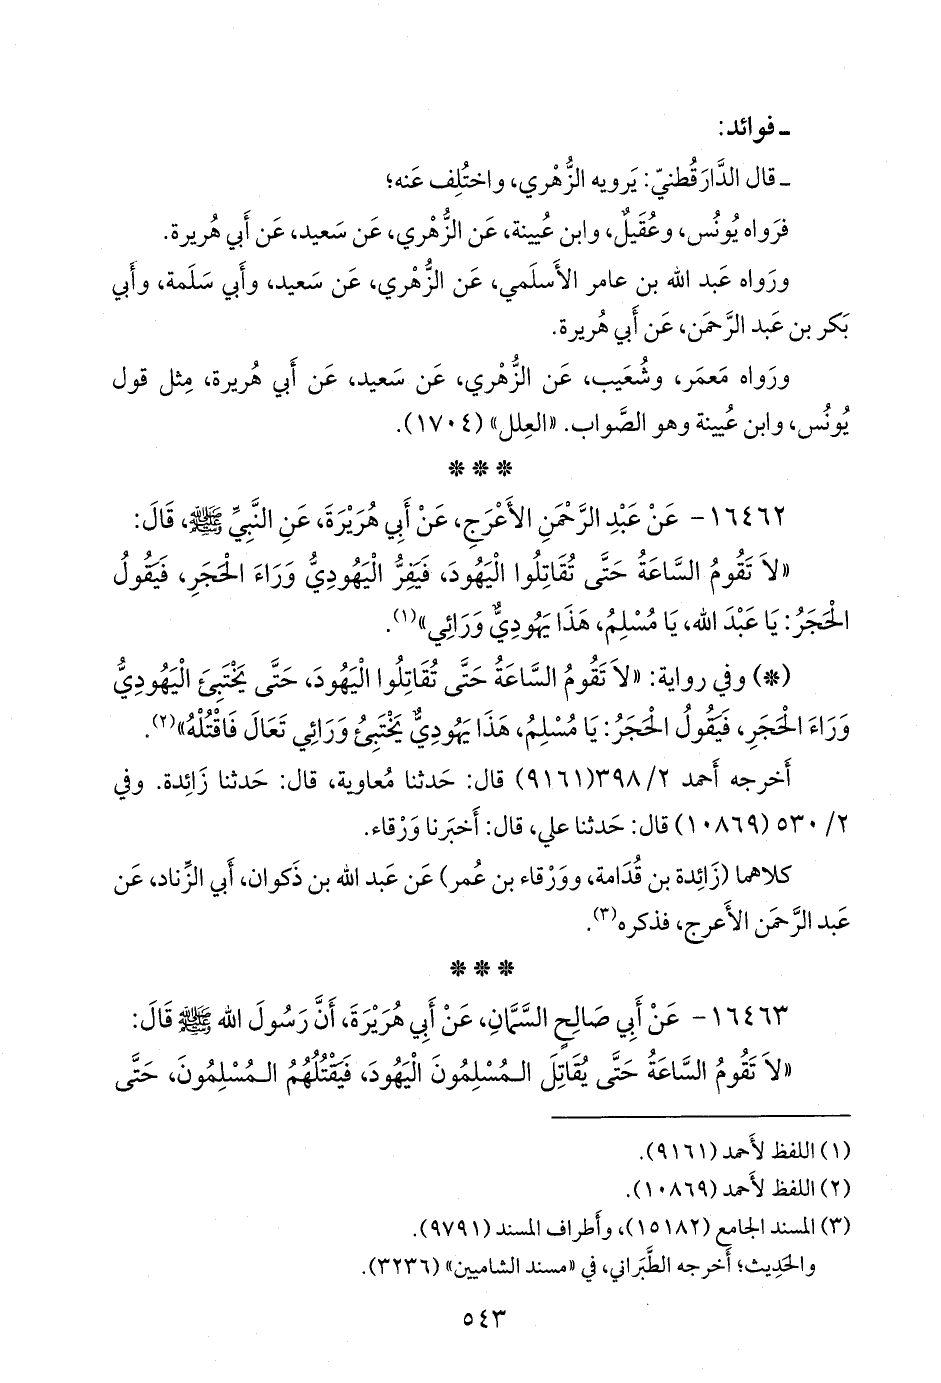 ـ فوائد:
ـ قال الدَّارَقُطنيّ: يَرويه الزُّهْري، واختُلِف عَنه؛
فرَواه يُونُس، وعُقَيلٌ، وابن عُيينة، عَن الزُّهْري، عَن سَعيد، عَن أَبي هُريرة.
ورَواه عَبد الله بن عامر الأَسلَمي، عَن الزُّهْري، عَن سَعيد، وأَبي سَلَمة، وأَبي
بَكر بن عَبد الرَّحمَن، عَن أَبي هُريرة.
ورَواه مَعمَر، وشُعَيب، عَن الزُّهْري، عَن سَعيد، عَن أَبي هُريرة، مِثل قول
يُونُس، وابن عُيينة وهو الصَّواب. «العِلل» (١٧٠٤).
* * *
١٦٤٦٢- عَنْ عَبْدِ الرَّحْمَنِ الأَعْرَجِ، عَنْ أَبِي هُرَيْرَةَ، عَنِ النَّبِيِّ ﷺ، قَالَ:
«لاَ تَقُومُ السَّاعَةُ حَتَّى تُقَاتِلُوا الْيَهُودَ، فَيَفِرُّ الْيَهُودِيُّ وَرَاءَ الحَجَرِ، فَيَقُولُ
الْحَجَرُ: يَا عَبْدَ الله، يَا مُسْلِمُ، هَذَا يَهُودِيٌّ وَرَائِي»(١).
(*) وفي رواية: «لاَ تَقُومُ السَّاعَةُ حَتَّى تُقَاتِلُوا الْيَهُودَ، حَتَّى يَخْتَبِئَ الْيَهُودِيُّ
وَرَاءَ الحَجَرِ، فَيَقُولُ الْحَجَرُ: يَا مُسْلِمُ، هَذَا يَهُودِيٌّ يَخْتَبِئُ وَرَائِي تَعَالَ فَاقْتُلْهُ»(٢).
أَخرجه أَحمد ٢/ ٣٩٨(٩١٦١) قال: حَدثنا مُعاوية، قال: حَدثنا زَائِدة. وفي
٢/ ٥٣٠ (١٠٨٦٩) قال: حَدثنا علي، قال: أَخبَرنا وَرْقاء.
كلاهما (زَائِدة بن قُدَامة، ووَرْقاء بن عُمر) عَن عَبد الله بن ذَكوان، أَبي الزِّناد، عَن
عَبد الرَّحمَن الأَعرج، فذكره(٣).
* * *
١٦٤٦٣- عَنْ أَبِي صَالِحٍ السَّمَّانِ، عَنْ أَبِي هُرَيْرَةَ، أَنَّ رَسُولَ الله ﷺ قَالَ:
«لاَ تَقُومُ السَّاعَةُ حَتَّى يُقَاتِلَ الـمُسْلِمُونَ الْيَهُودَ، فَيَقْتُلُهُمُ الـمُسْلِمُونَ، حَتَّى
(١) اللفظ لأَحمد (٩١٦١).
(٢) اللفظ لأَحمد (١٠٨٦٩).
(٣) المسند الجامع (١٥١٨٢)، وأَطراف المسند (٩٧٩١).
والحَدِيث؛ أَخرجه الطَّبَراني، في «مسند الشاميين» (٣٢٣٦).
٥٤٣